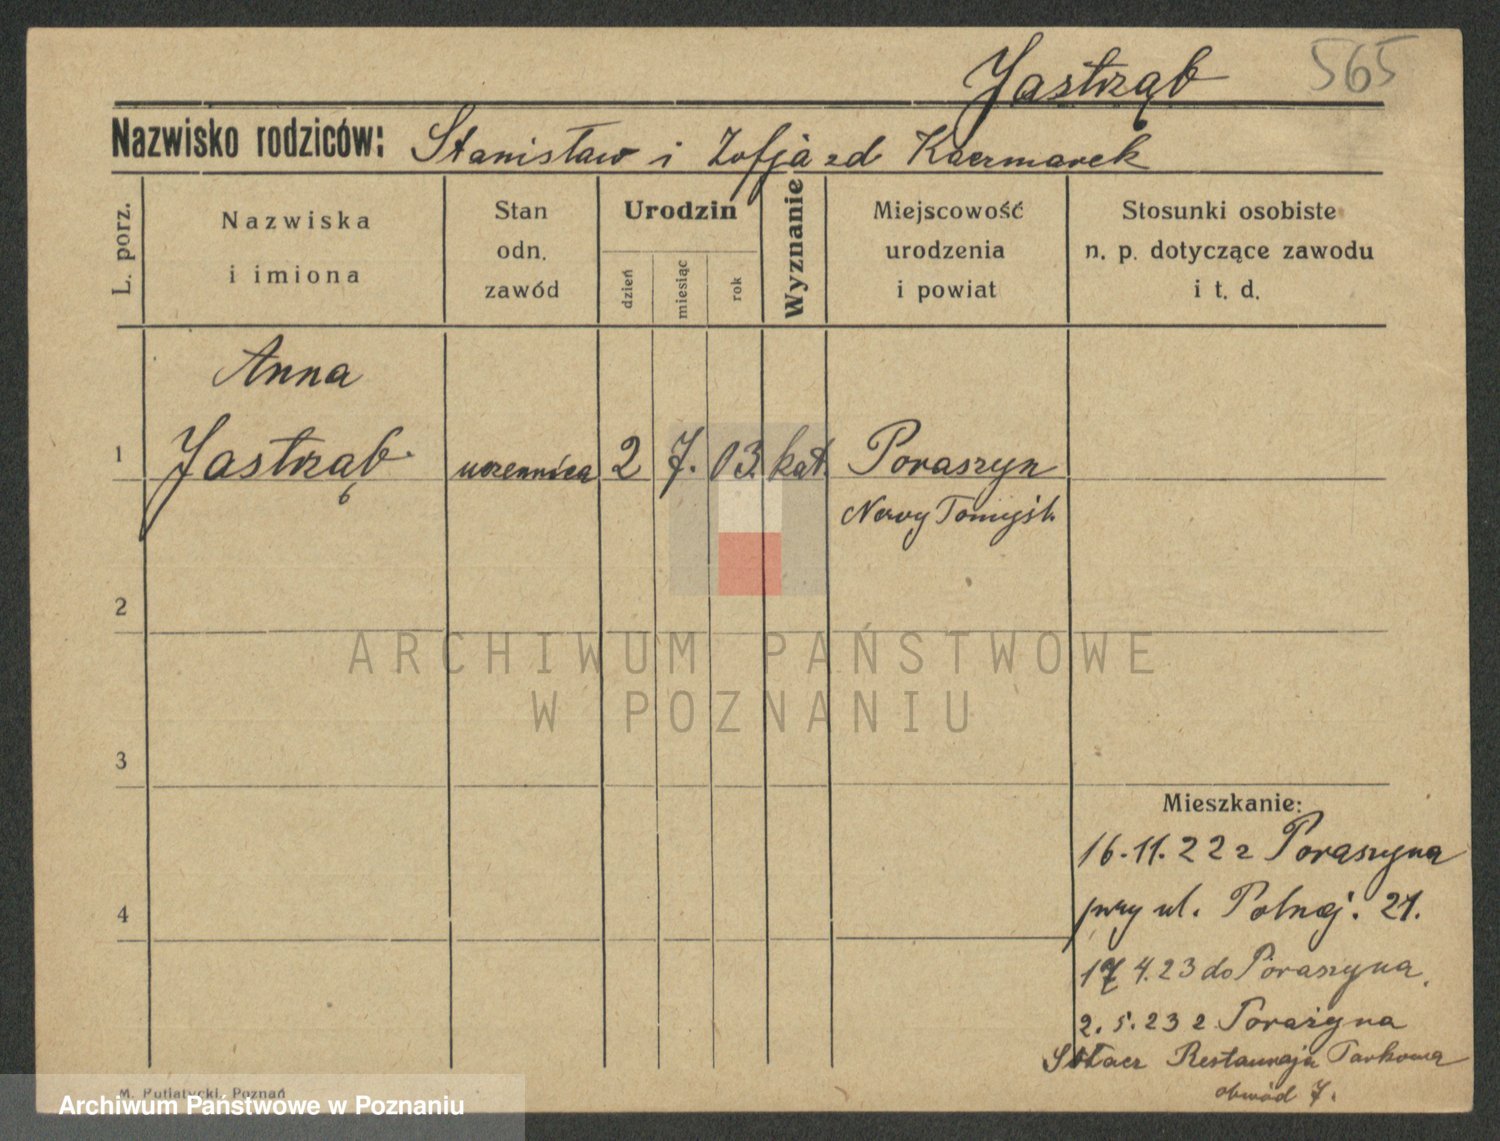 Jastrząb 565
Nazwisko rodziców: Stanisław i Zofja zd Kaczmarek
L. porz.
Nazwiska
i imiona
Stan
odn.
zawód
Urodzin
dzień
miesiąc
rok
Wyznanie
Miejscowość
urodzenia
i powiat
Stosunki osobiste
n. p. dotyczące zawodu
i t. d.
Anna
1 Jastrząb uczennica 2 7. 03. kat. Poraszyn
Nowy Tomyśl.
2
ARCHIWUM PAŃSTWOWE
W POZNANIU
3
Mieszkanie:
16.11.22 z Poraszyna
4 przy ul. Polnej. 21.
17 4.23 do Poraszyna.
2.5.23 z Porażyna
Sołacz Restauracja Parkowa
obwód 7.
M. Putiatycki, Poznań
Archiwum Państwowe w Poznaniu